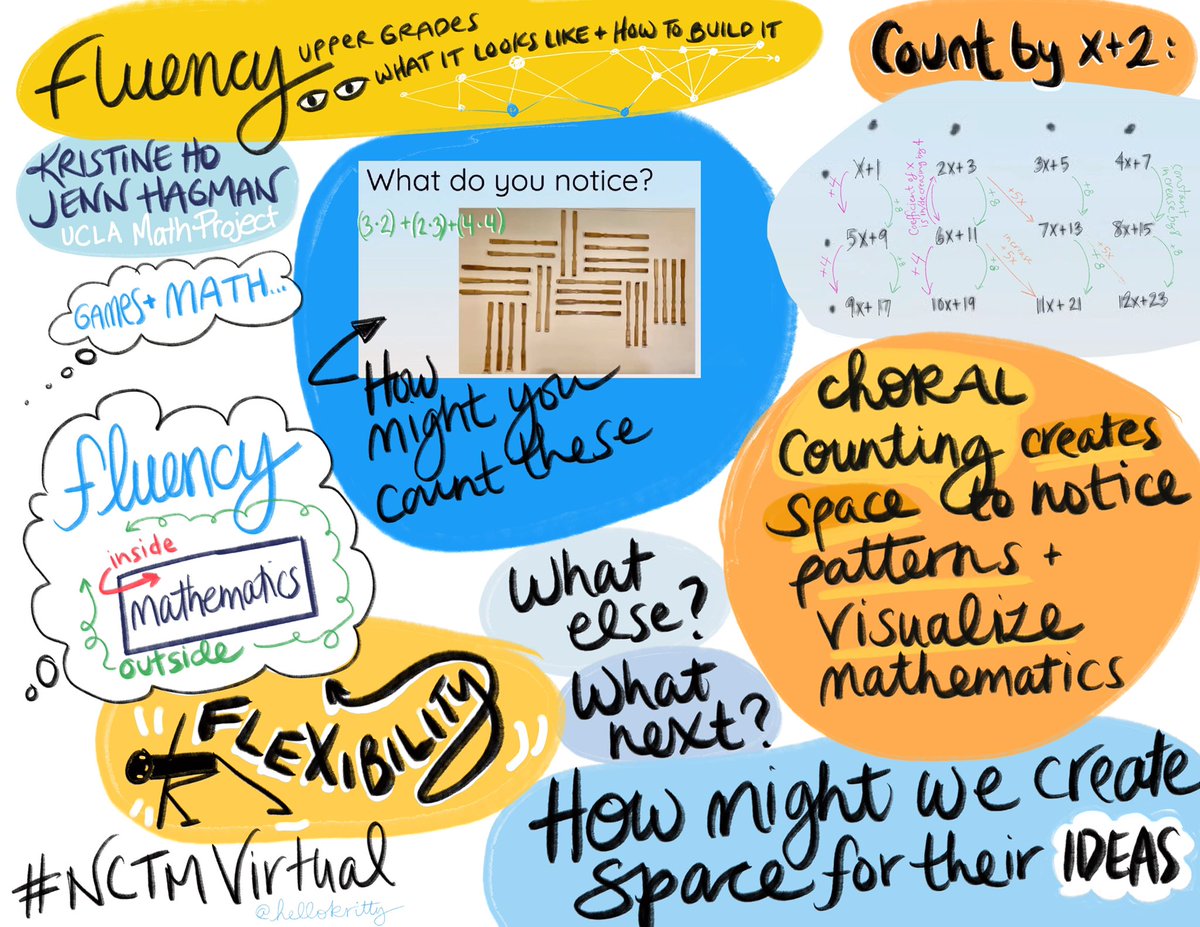 Fluency UPPER GRADES
WHAT IT LOOKS LIKE + HOW TO BUILD IT
KRISTINE HO
JENN HAGMAN
UCLA Math Project
GAMES + MATH...
fluency
inside
mathematics
outside
What do you notice?
(3·2)+(2·3)+(4·4)
How
might you
count these
Count by x+2:
x+1 2x+3 3x+5 4x+7
+4 +8 Coefficient of x +5x +8 Constant
increase by 8 +8
5x+9 6x+11 7x+13 8x+15
+4 +8 +4 +8 increase +5x +8 +5x
9x+17 10x+19 11x+21 12x+23
CHORAL
Counting creates
space to notice
patterns +
VISUALIZE
mathematics
What
else?
What
next?
FLEXIBILITY
How might we create
space for their IDEAS
#NCTMVirtual
@hellokritty